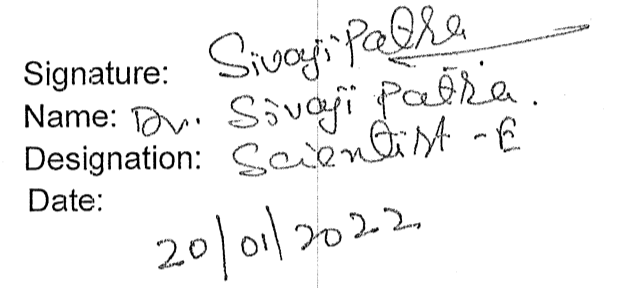 Signature: Sivaji Patra
Name: Dr. Sivaji Patra.
Designation: Scientist - E
Date:
20/01/2022